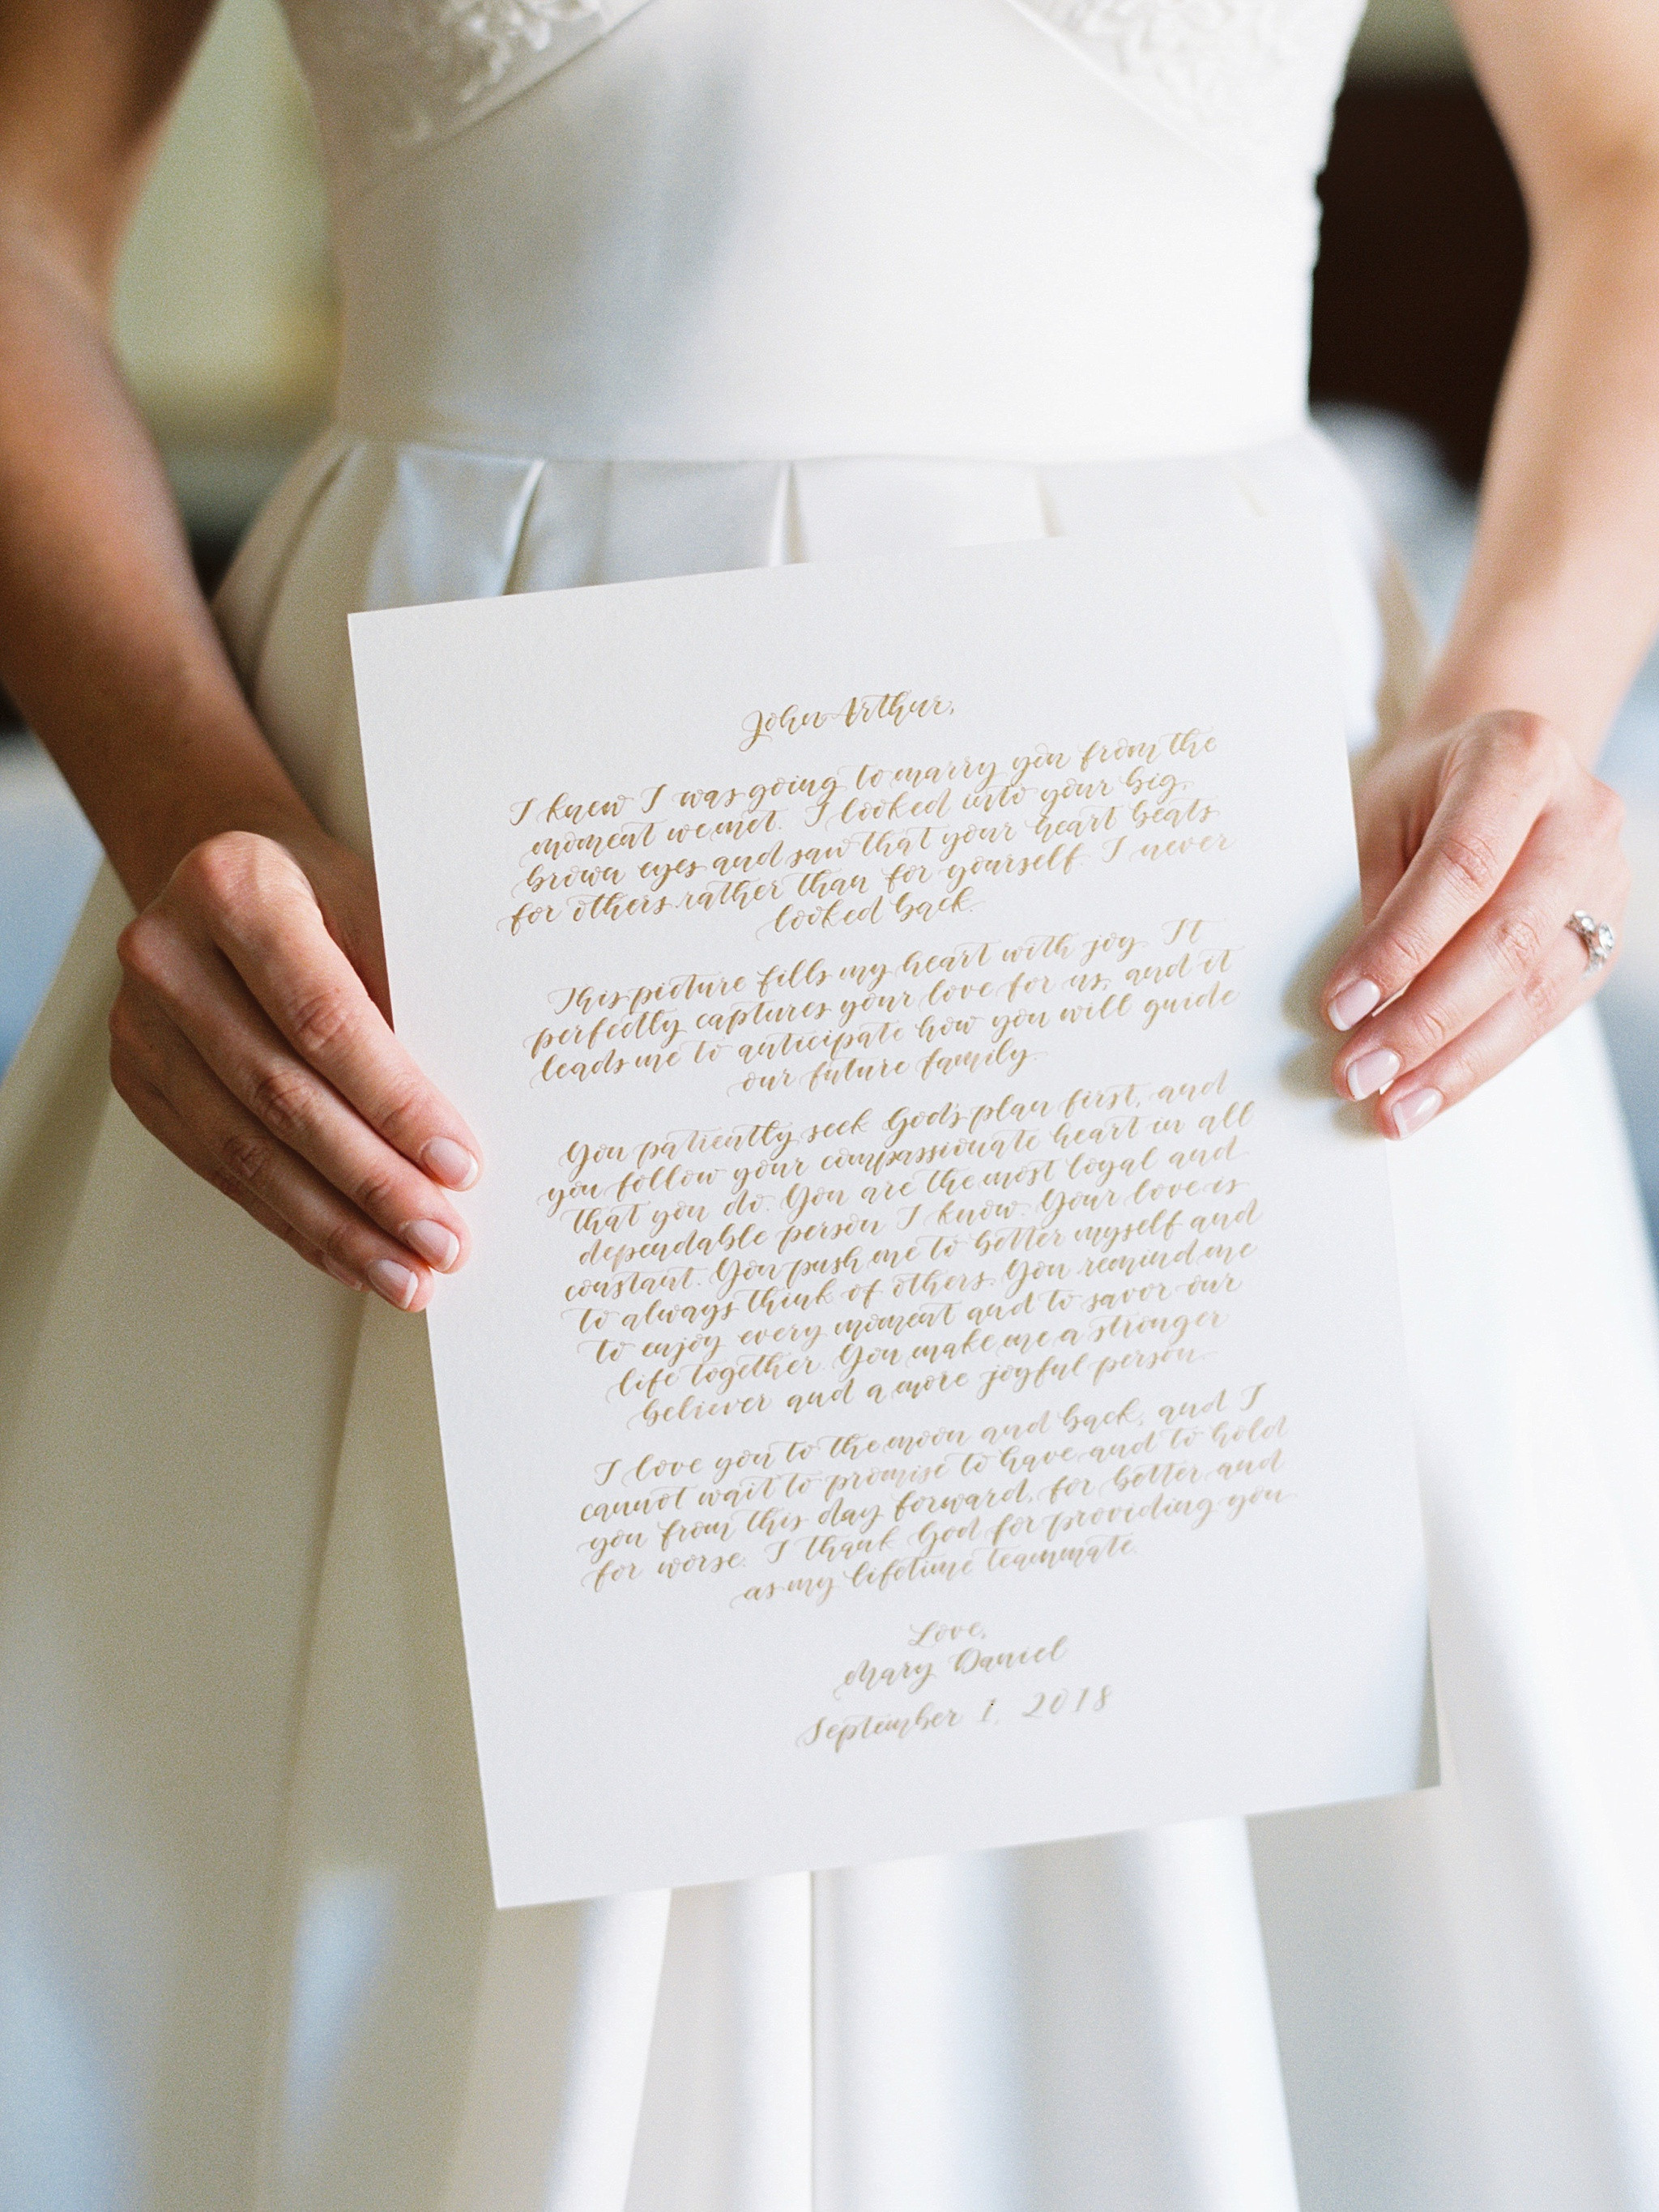 John Arthur,
I knew I was going to marry you from the
moment we met. I looked into your big,
brown eyes and saw that your heart beats
for others rather than for yourself. I never
looked back.
This picture fills my heart with joy. It
perfectly captures your love for us, and it
leads me to anticipate how you will guide
our future family.
You patiently seek God's plan first, and
you follow your compassionate heart in all
that you do. You are the most loyal and
dependable person I know. Your love is
constant. You push me to better myself and
to always think of others. You remind me
to enjoy every moment and to savor our
life together. You make me a stronger
believer and a more joyful person.
I love you to the moon and back, and I
cannot wait to promise to have and to hold
you from this day forward, for better and
for worse. I thank God for providing you
as my lifetime teammate.
Love,
Mary Daniel
September 1, 2018